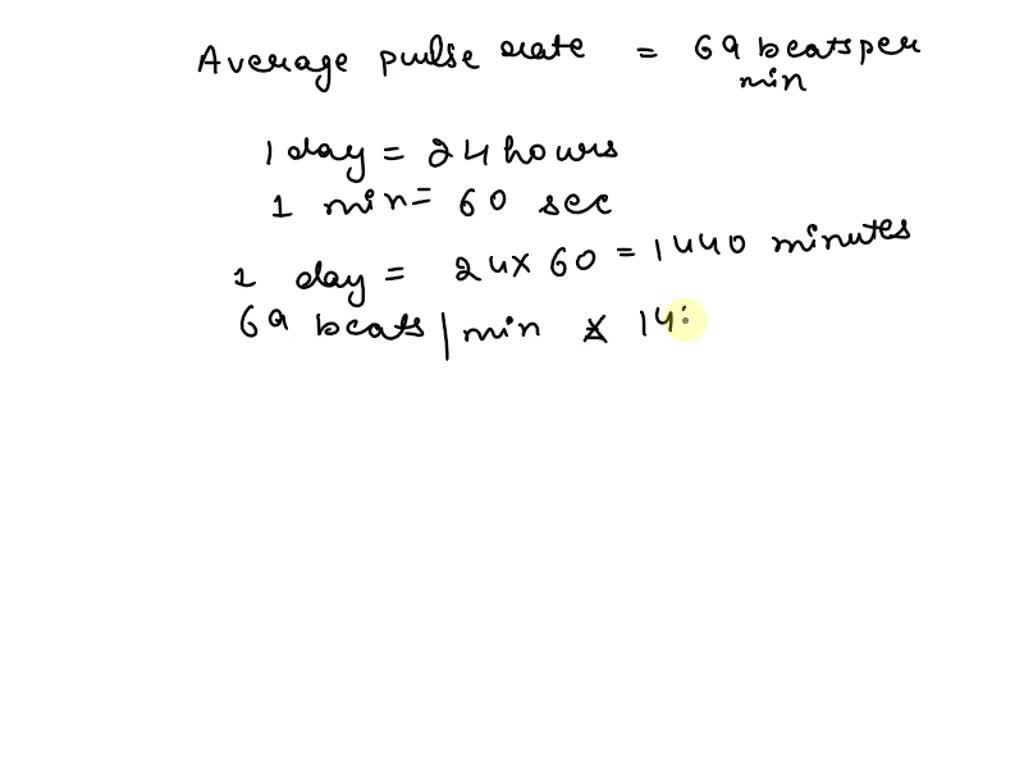 Average pulse rate = 69 beats per
min
1 day = 24 hours
1 min = 60 sec
1 day = 24 x 60 = 1440 minutes
69 beats / min x 14